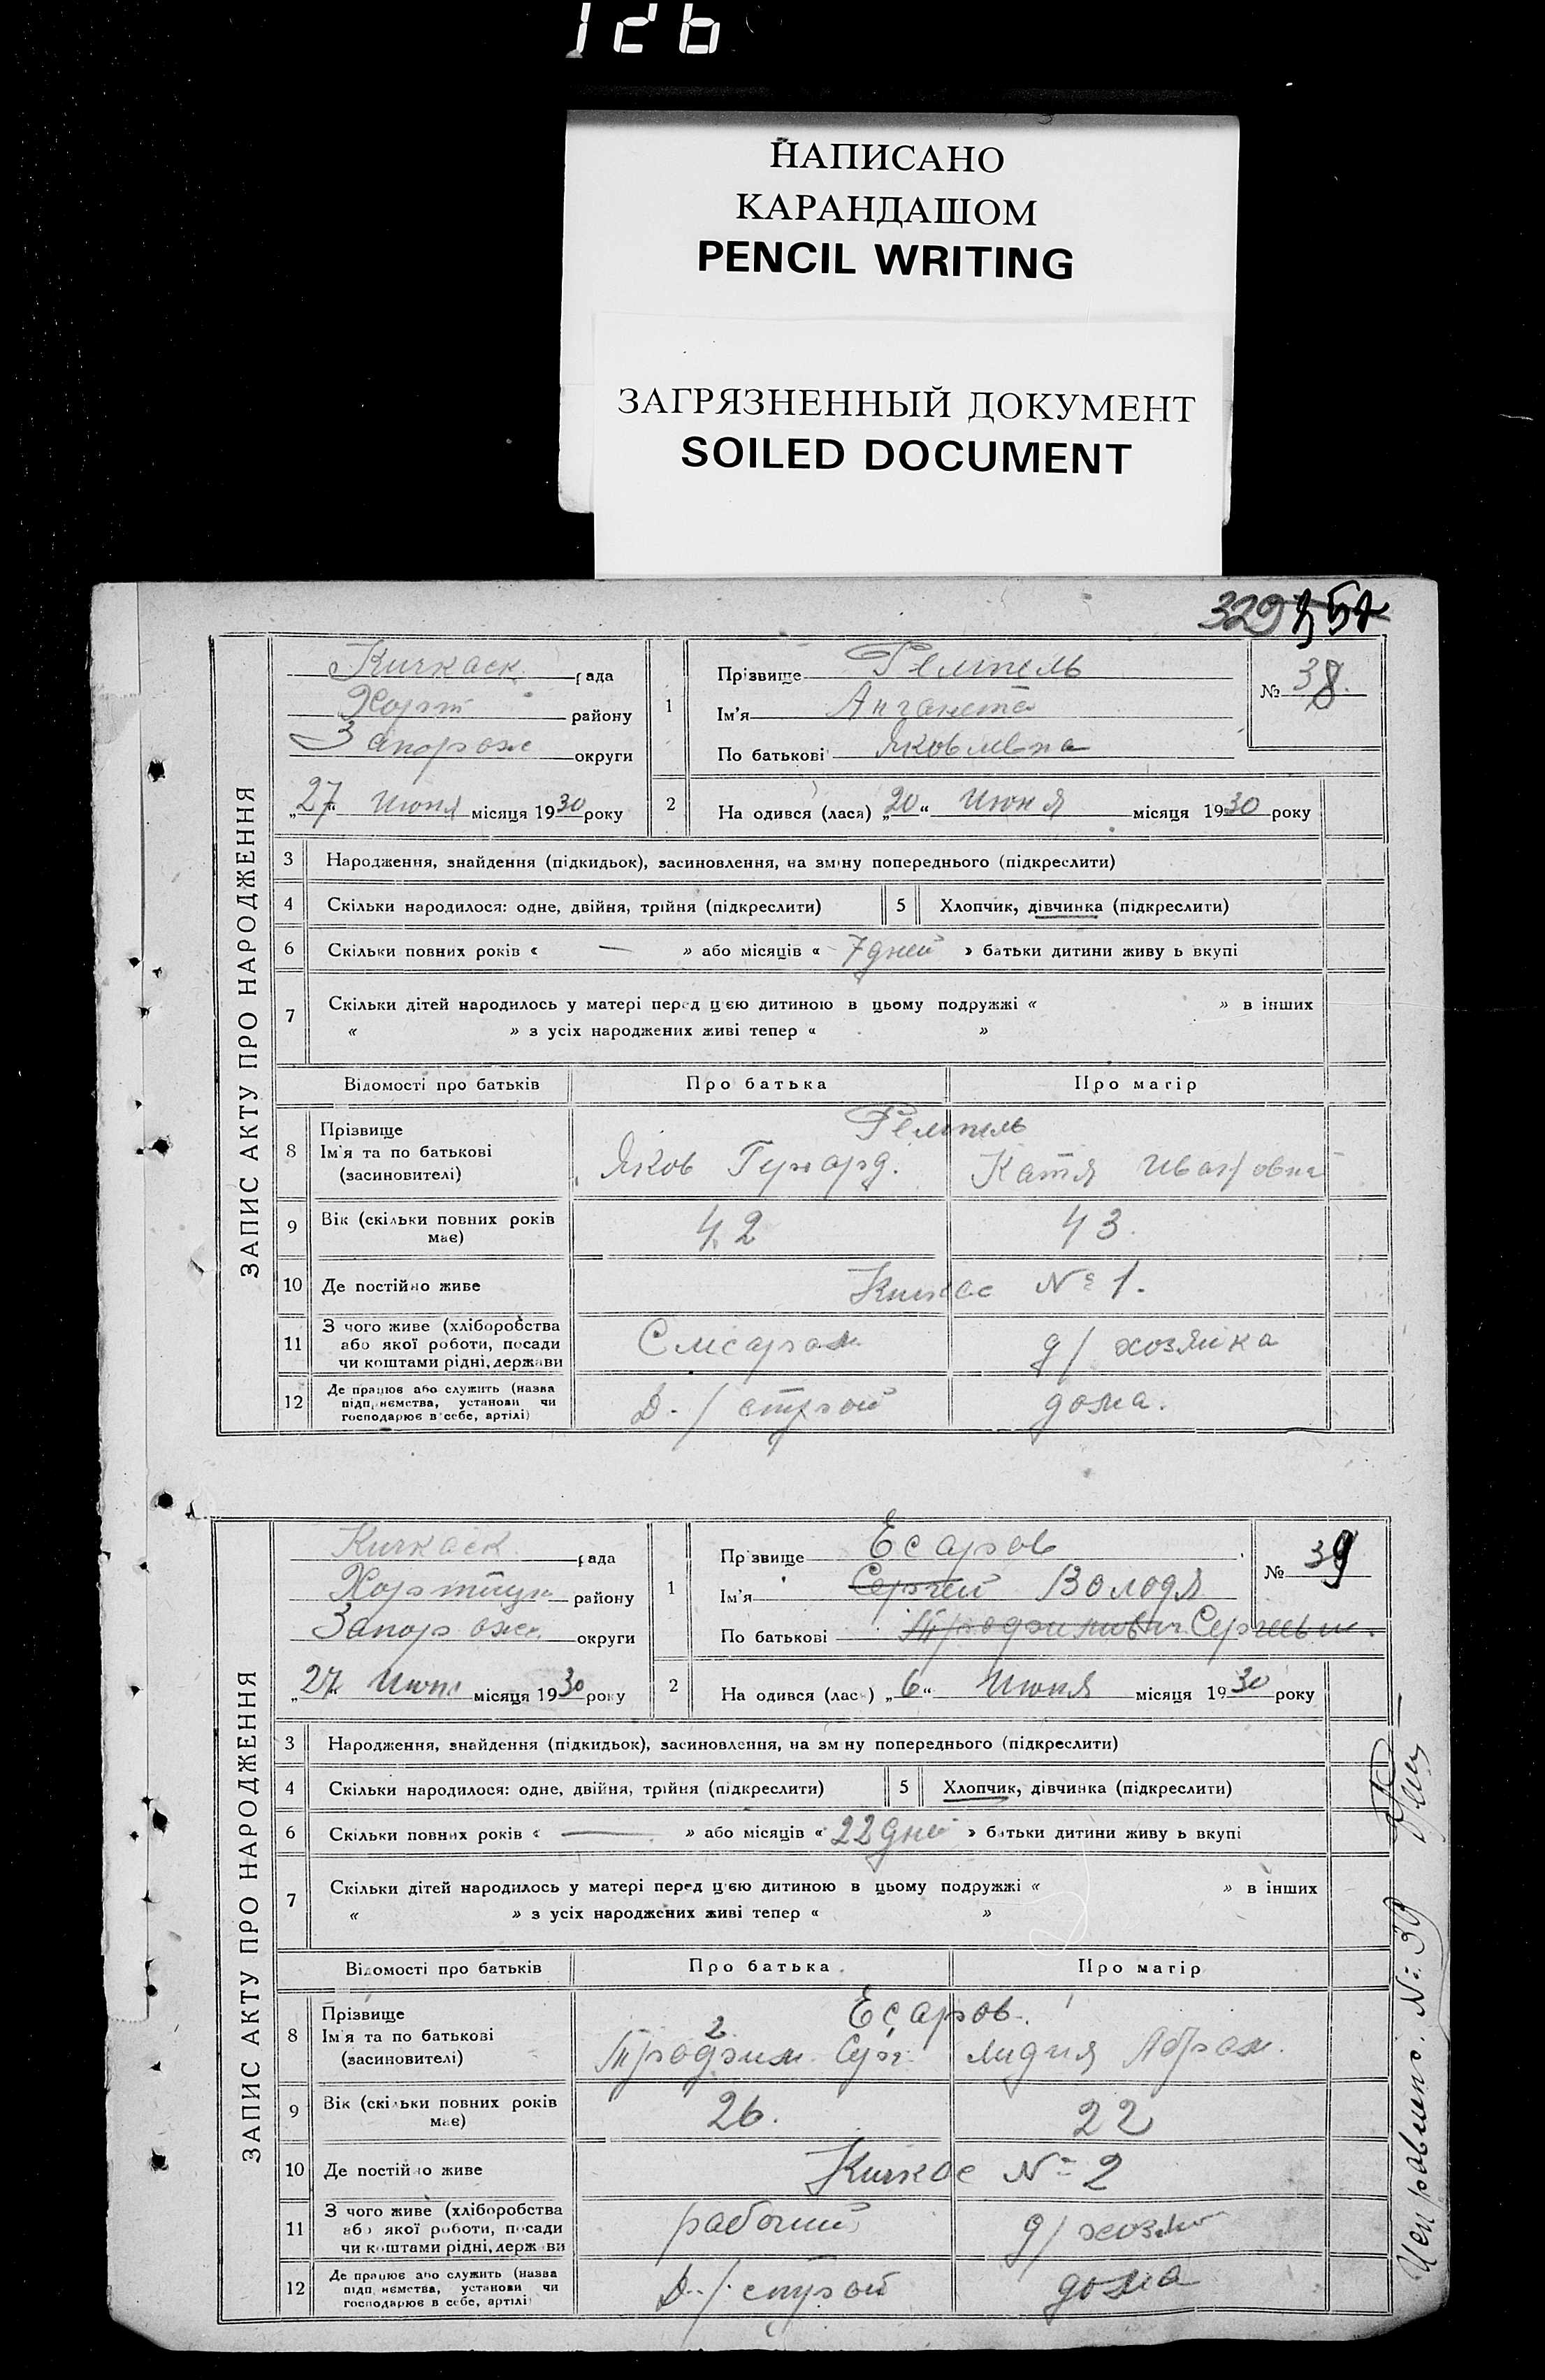 126
НАПИСАНО
КАРАНДАШОМ
PENCIL WRITING
ЗАГРЯЗНЕННЫЙ ДОКУМЕНТ
SOILED DOCUMENT
329
ЗАПИС АКТУ ПРО НАРОДЖЕННЯ
Кичкаск рада
Хорт району
Запорож округи
„27“ Июня місяця 1930 року
1 Прізвище Ремпель
Ім'я Анганета
По батькові Яковлевна
№ 38.
2 Народився (лася) „20“ Июня місяця 1930 року
3 Народження, знайдення (підкидьок), засиновлення, на зміну попереднього (підкреслити)
4 Скільки народилося: одне, двійня, трійня (підкреслити) 5 Хлопчик, дівчинка (підкреслити)
6 Скільки повних років « — » або місяців « 7 дней » батьки дитини живуть вкупі
7 Скільки дітей народилось у матері перед цією дитиною в цьому подружжі « » в інших
« » з усіх народжених живі тепер « »
Відомості про батьків Про батька Про матір
8 Прізвище
Ім'я та по батькові
(засиновителі)
Ремпель
Яков Гергард. Катя Ивановна
9 Вік (скільки повних років має) 42 43.
10 Де постійно живе Кичкас № 1.
11 З чого живе (хліборобства
або якої роботи, посади
чи коштами рідні, держави
Слесарем д/ хозяйка
12 Де працює або служить (назва
підприємства, установи чи
господарює в себе, артілі)
Д-/ строй дома.
ЗАПИС АКТУ ПРО НАРОДЖЕННЯ
Кичкаск рада
Хортицк району
Запорож. округи
„27“ Июня місяця 1930 року
1 Прізвище Есаров
Ім'я Сергей Володя
По батькові Сергеевич.
№ 39
2 Народився (лася) „6“ Июня місяця 1930 року
3 Народження, знайдення (підкидьок), засиновлення, на зміну попереднього (підкреслити)
4 Скільки народилося: одне, двійня, трійня (підкреслити) 5 Хлопчик, дівчинка (підкреслити)
6 Скільки повних років « — » або місяців « 22 дней » батьки дитини живуть вкупі
7 Скільки дітей народилось у матері перед цією дитиною в цьому подружжі « » в інших
« » з усіх народжених живі тепер « »
Відомості про батьків Про батька Про матір
8 Прізвище
Ім'я та по батькові
(засиновителі)
Есаров.
Серг. Лидия Абрам.
9 Вік (скільки повних років має) 26. 22
10 Де постійно живе Кичкас № 2
11 З чого живе (хліборобства
або якої роботи, посади
чи коштами рідні, держави
рабочий д/ хозяй
12 Де працює або служить (назва
підприємства, установи чи
господарює в себе, артілі)
Д-/ строй дома
Исправлено. №: 39